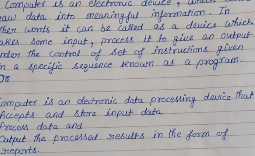 Computer is an electronic device, which
raw data into meaningful information. In
her words it can be called as a device which
akes some input, process it to give an output
nder the control of set of instructions given
n a specific sequence known as a program.
Or
omputer is an electronic data processing device that
Accepts and store input data
Process data and
Output the processed results in the form of
reports.